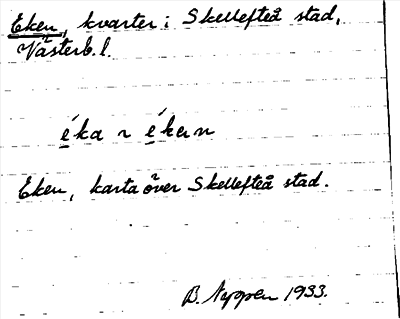 Eken, kvarter i Skellefteå stad,
Västerb. l.
éka ~ ékan
Eken, karta över Skellefteå stad.
B. 1933.